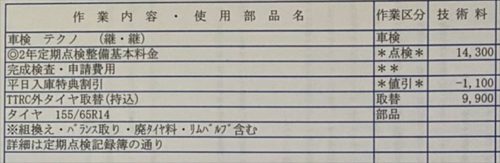 作業内容・使用部品名 作業区分 技術料
車検 テクノ (継・継) 車検
◎2年定期点検整備基本料金 *点検* 14,300
完成検査・申請費用 **
平日入庫特典割引 *値引* -1,100
TTRC外タイヤ取替(持込) 取替 9,900
タイヤ 155/65R14 部品
※組換え・バランス取り・廃タイヤ料・リムバルブ含む
詳細は定期点検記録簿の通り